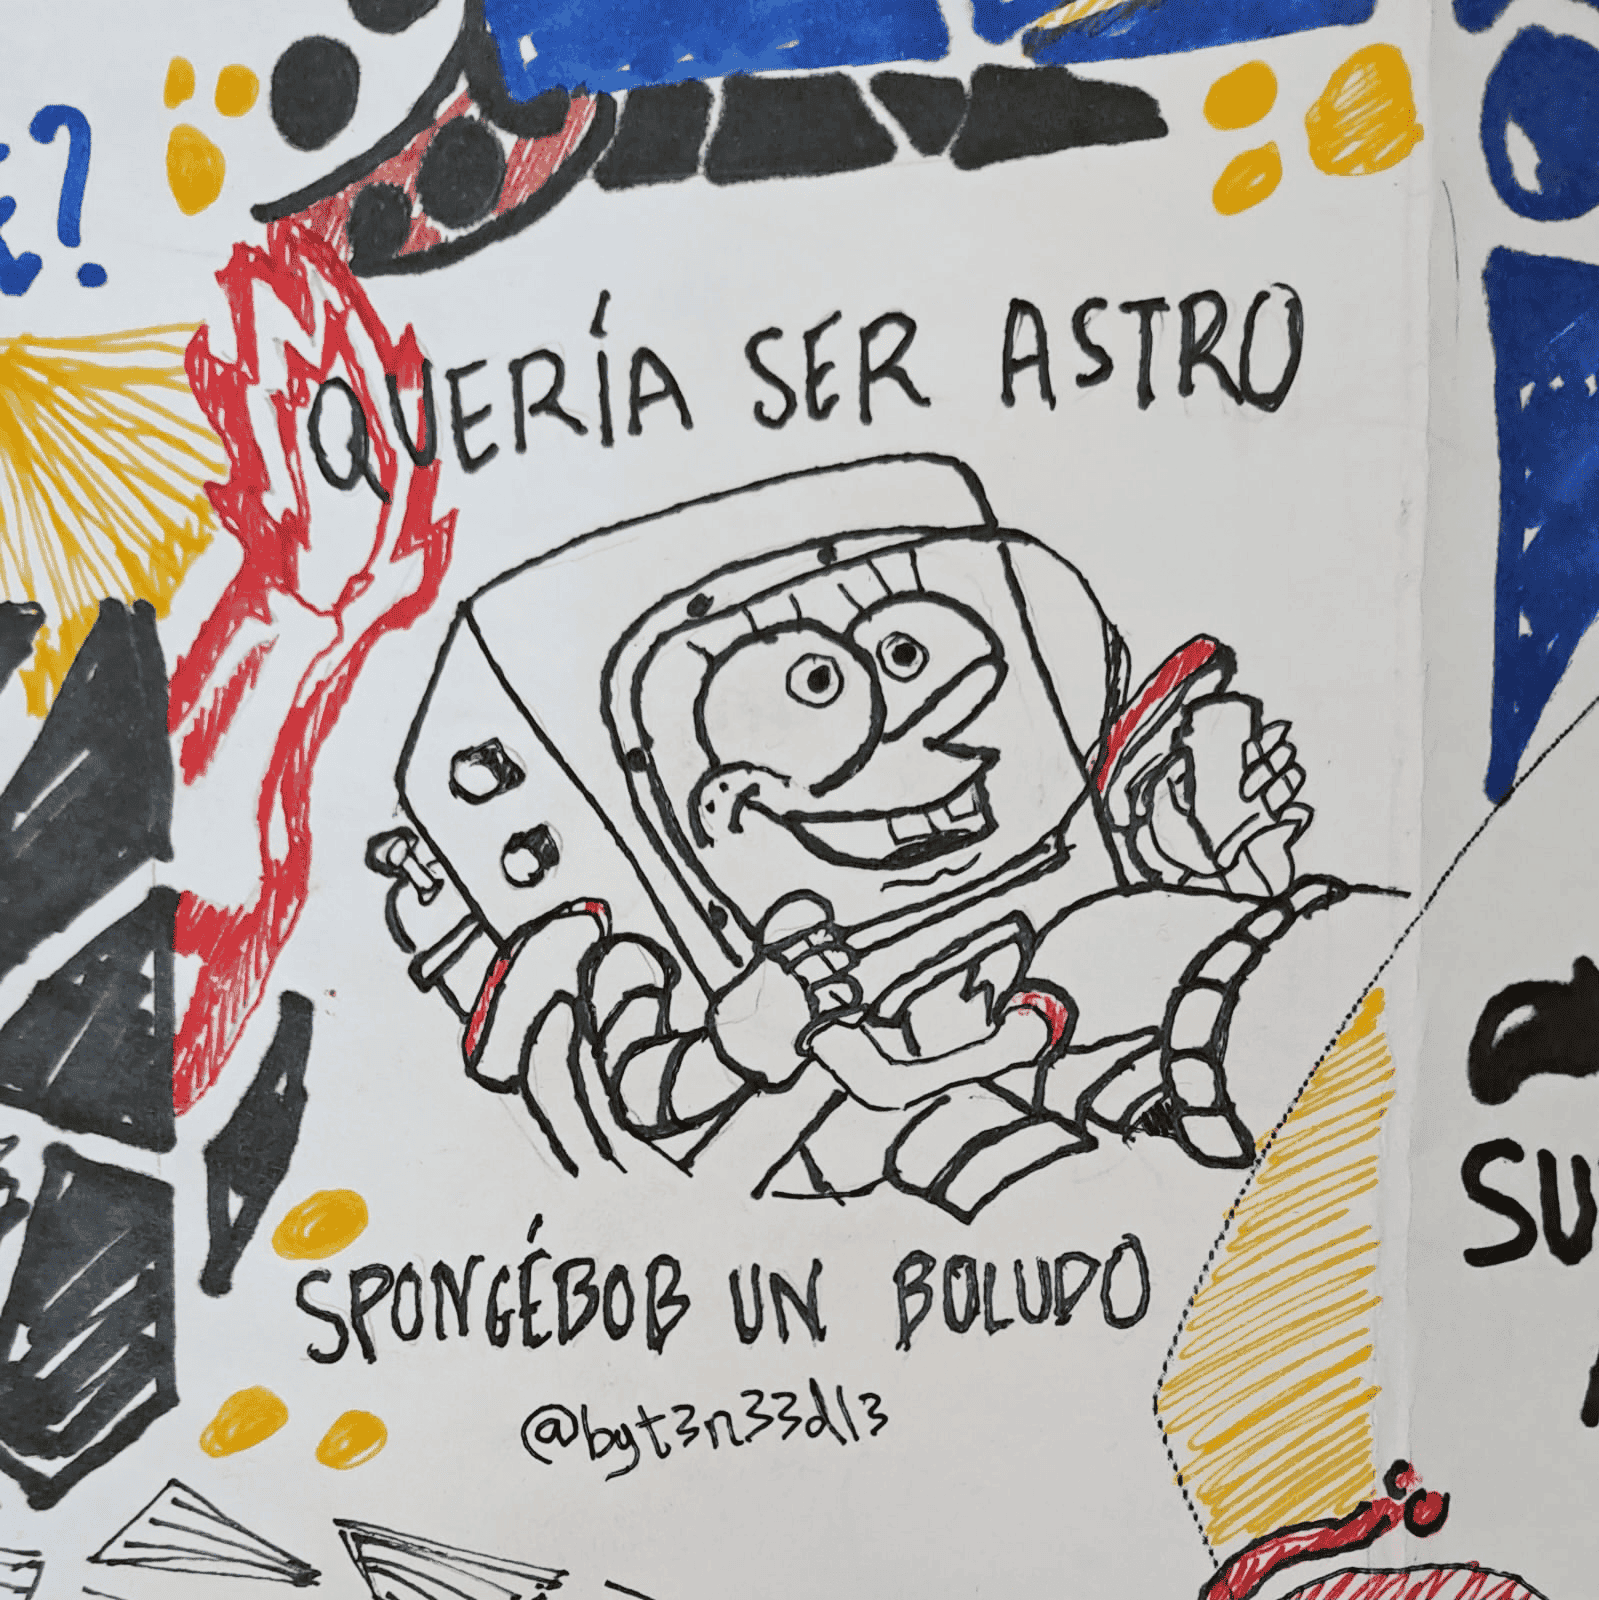 QUERÍA SER ASTRO
SPONGÉBOB UN BOLUDO
@byt3n33dl3
SU